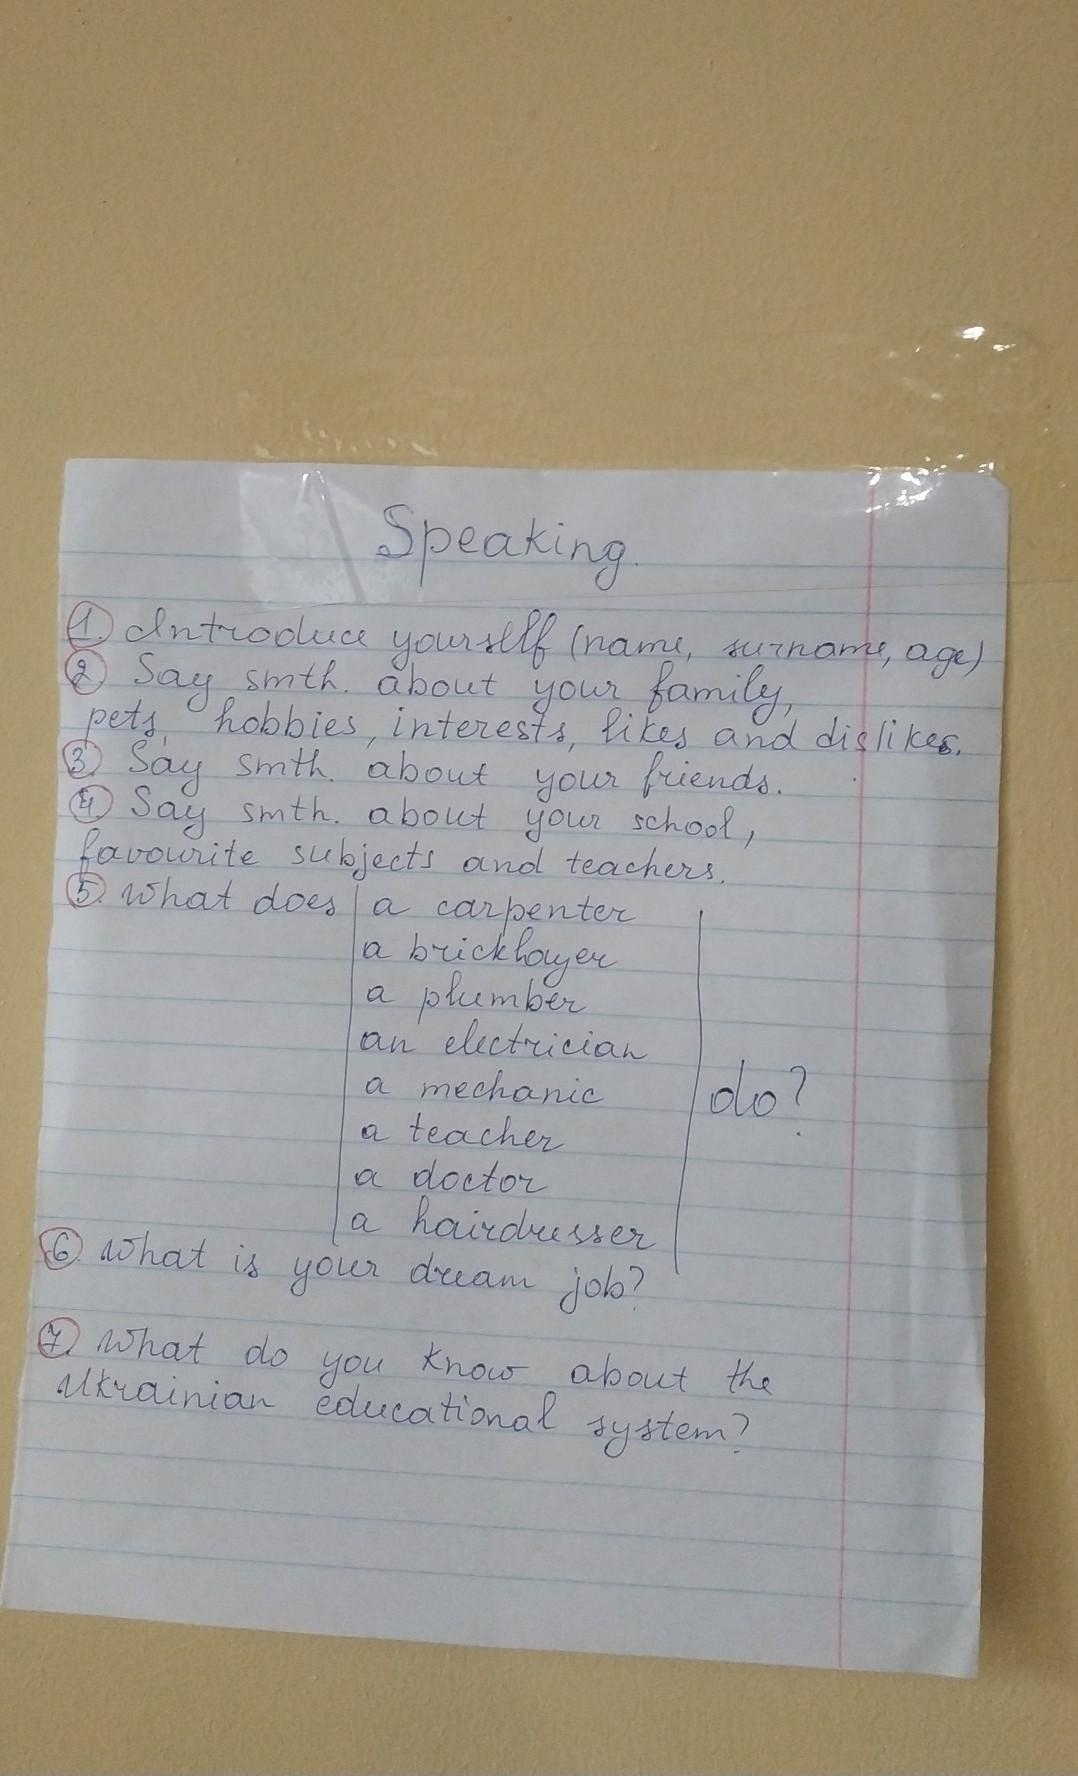 Speaking.
1. Introduce yourself (name, surname, age)
2. Say smth. about your family,
pets, hobbies, interests, likes and dislikes.
3. Say smth. about your friends.
4. Say smth. about your school,
favourite subjects and teachers.
5. What does a carpenter
a bricklayer
a plumber
an electrician
a mechanic do?
a teacher
a doctor
a hairdresser
6. What is your dream job?
7. What do you know about the
Ukrainian educational system?